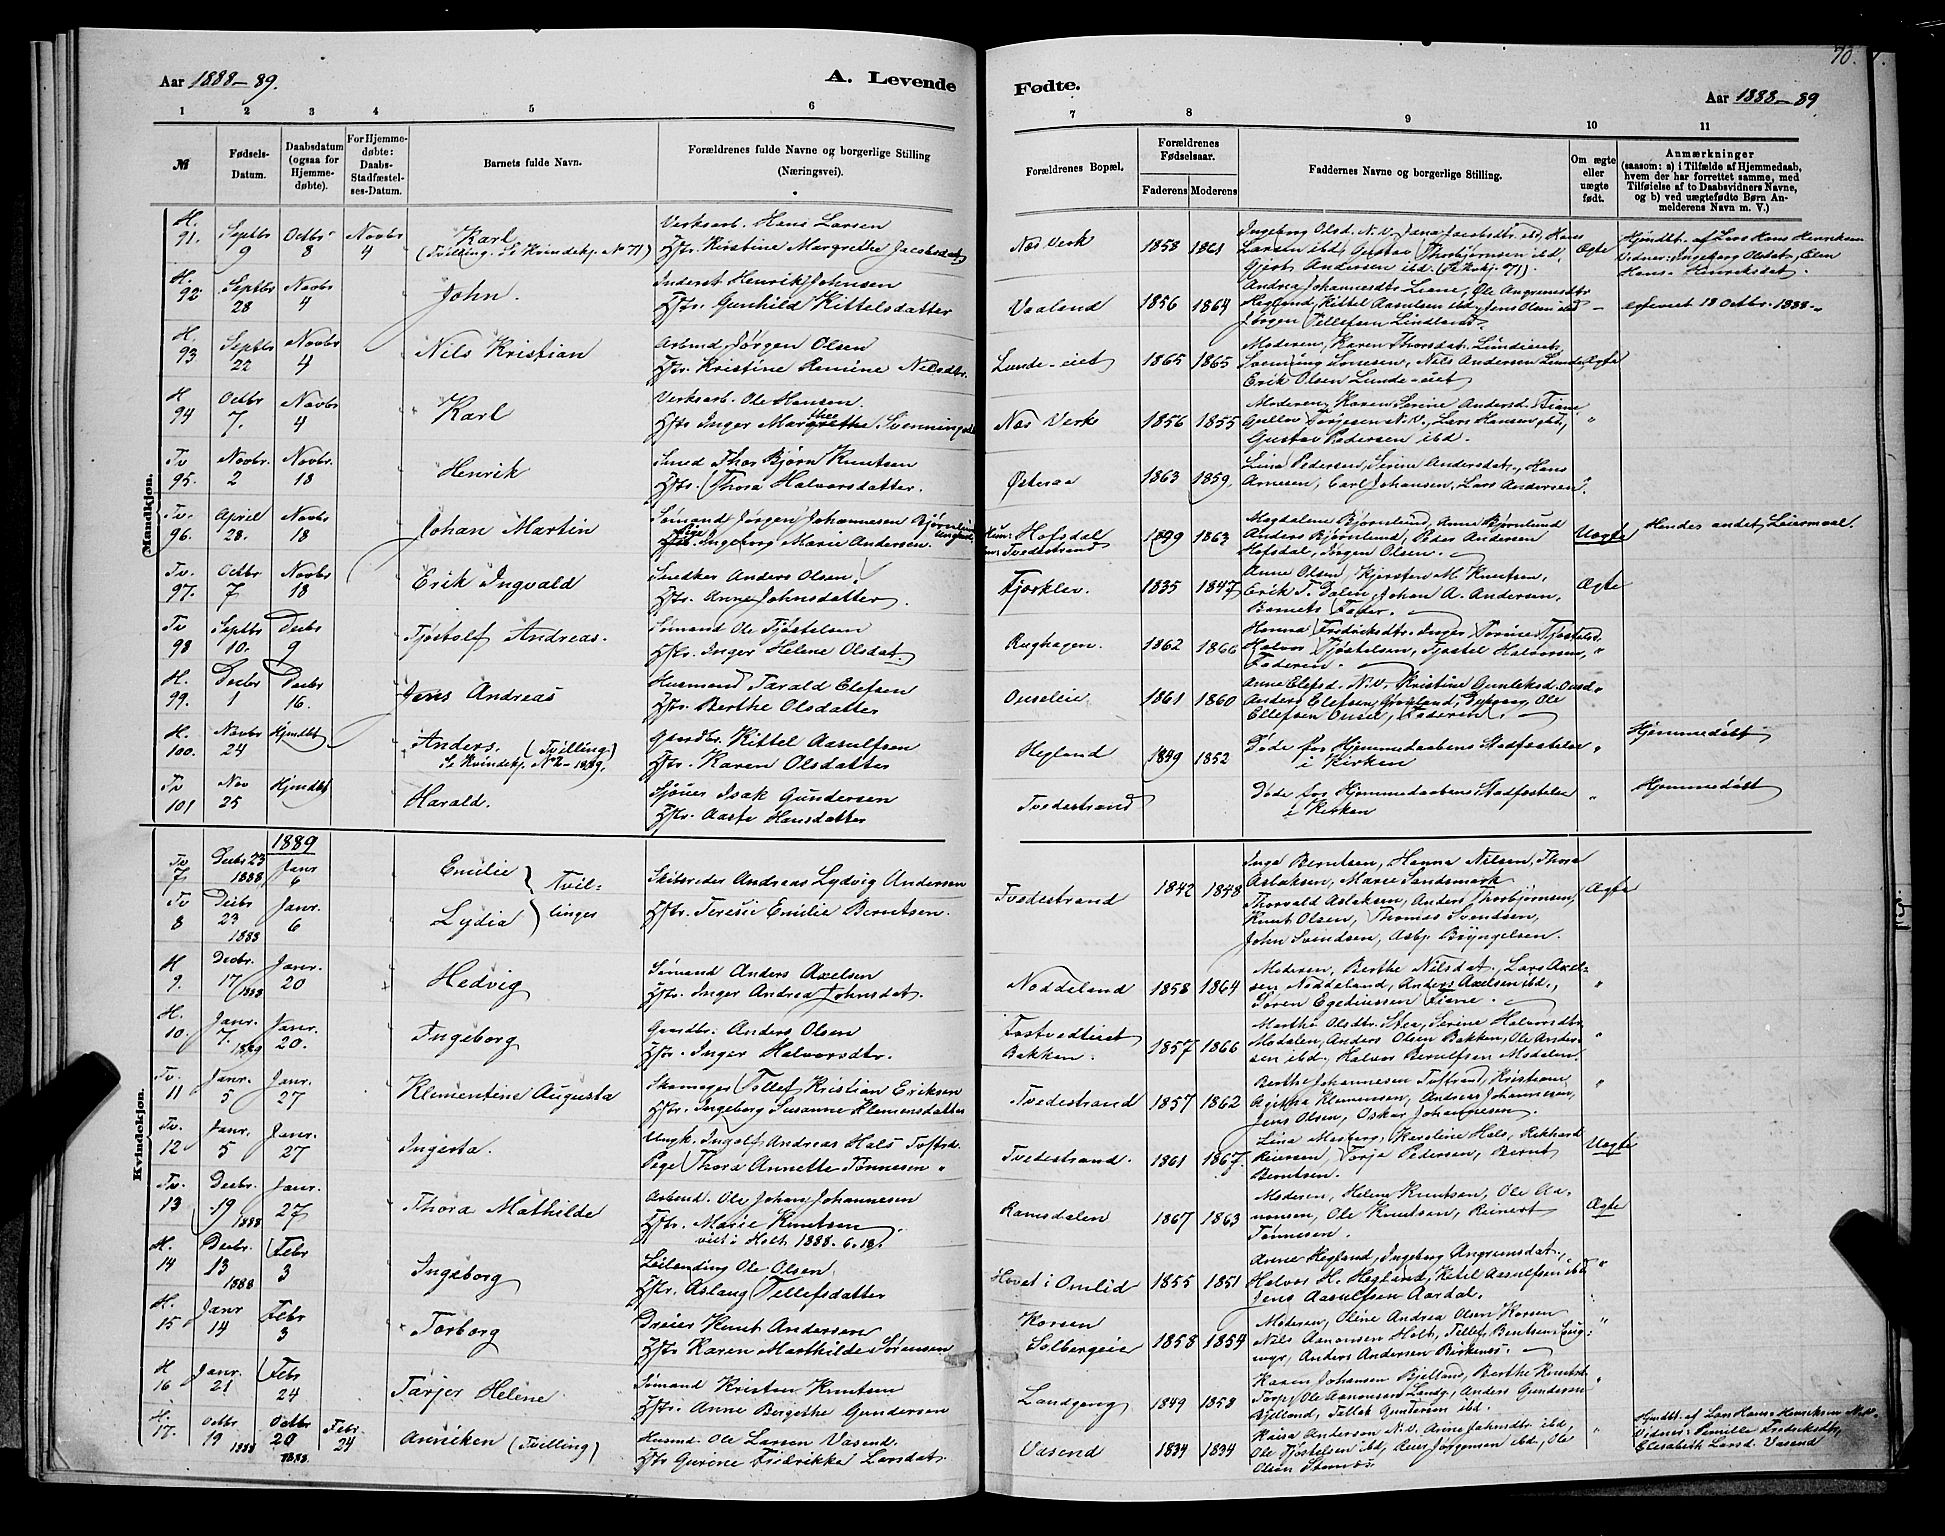 70.
Aar 1888-89.
A. Levende
Fødte.
Aar 1888-89
1 2 3 4 5 6 7 8 9 10 11
№
Fødsels-Datum.
Daabsdatum (ogsaa for Hjemmedøbte).
For Hjemmedøbte: Daabs-Stadfæstelses-Datum.
Barnets fulde Navn.
Forældrenes fulde Navne og borgerlige Stilling (Næringsvei).
Forældrenes Bopæl.
Forældrenes Fødselsaar.
Faderens Moderens
Faddernes Navne og borgerlige Stilling.
Om ægte eller uægte født.
Anmærkninger
(saasom: a) i Tilfælde af Hjemmedaab, hvem der har forrettet samme, med Tilføielse af to Daabsvidners Navne, og b) ved uægtefødte Børn Anmelderens Navn m. V.)
Mandkjøn.
H. 91. Septbr 9 Octbr 8 Novbr 4 Karl
(Tvilling. Se Kvindekj. No 71)
Verksarb. Hans Larsen
Hstr. Kristine Margrethe Jacobsdat.
Næs Verk 1858 1861
Larsen ibd, Gustav Thorbjørnsen ibd,
Gjert Andersen ibd. (Se Kvkj. 71).
Ægte
Hjmdbt. af Lars Hans Henriksen
Vidner: Ingeborg Olsdat., Elen
Hans-Henriksdat.
H. 92 Septbr 28 Novbr 4 John.
Inderst Henrik Johnsen
Hstr. Gunhild Kittelsdatter
Vaaland 1856 1864
Hegland, Kittel Aasulsen ibd, Jens Olsen ibd
Jørgen Tellefsen Lindland.
H. 93 Septbr 22 Novbr 4 Nils Kristian
Arbmd. Jørgen Olsen
Hstr. Kristine Nilsdtr.
Lunde-eiet 1865 1865
Moderen, Karen Thorsdat. Lundeeiet,
Nils Andersen Lunde
Erik Olsen Lunde-eiet
Ægte
H 94 Octbr 7. Novbr 4 Karl
Verksarb. Ole Hansen.
Hstr. Inger Margrethe Svenningsdtr
Næs Verk 1856 1855
Moderen, Karen Serine Andersd. Fiane
Torjesen N.V., Lars Hansen ibd,
Gustav Pedersen ibd.
Tv 95. Novbr. 2 Novbr. 18 Henrik
Smed Thor Bjørn Knutsen
Hstr. Thora Halvorsdatter.
Østeraa 1863 1859.
Lina Pedersen, Serine Andersdat., Hans
Arnesen, Carl Johansen, Lars Andersen
Tv. 96. April 28. Novbr 18 Johan Martin
Sømand Jørgen Johannesen Bjørnlund
Pige Ingeborg Marie Andersen.
Hofsdal
Tvedestrand 1863
Magdalene Bjørnlund, Anne Bjørnlund
Anders Bjørnlund, Peder Andersen
Hofsdal, Jørgen Olsen.
Uægte
Hendes andet Leiermaal.
Tv. 97. Octbr 7 Novbr 18 Erik Ingvald
Snedker Anders Olsen.
Hstr. Anne Johnsdatter.
Fjærklev 1835 1847
Anne Olsen, Kjersten M. Knutsen,
Erik T. Dalen, Johan A. Andersen,
Barnets Fader.
Ægte
Tv 98 Septbr 10. Decbr 9 Tjøstolf Andreas.
Sømand Ole Tjøstelsen
Hstr. Inger Helene Olsdat.
Rughagen. 1862 1866
Hanna Fredriksdtr. Inger Torine Tjøstelsd,
Halvor Tjøstelsen, Tjøstel Halvorsen,
Faderen.
"
H. 99. Decbr 1 Decbr 16. Jens Andreas
Husmand Tarald Elefsen
Hstr. Berthe Olsdatter
Ouseleie 1861 1860
Anne Elefsd. N.V. Kristine Gunleksd. Ousd
Ellefsen Ousel, Faderen.
"
H. 100. Novbr 24 Hjmdbt Anders. (Tvilling.)
Se Kvindekj. No 2-1889.
Gaardbr. Kittel Aasulfsen
Hstr. Karen Olsdatter
Hegland 1849 1852
Døde før Hjemmedaabens Stadfæstelse
i Kirken
"
Hjemmedøbt
Tv 101 Nov 25 Hjmdbt Harald.
Sjøuer Isak Gundersen
Hstr. Aaste Hansdatter
Tvedestrand
Døde før Hjemmedaabens Stadfæstelse
i Kirken
"
Hjemmedøbt
Kvindekjøn.
1889
Tv 7 Decbr 23 1888 Janr 6 Emilie
Tvillinger
Tv 8 Decbr 23 1888 Janr. 6 Lydia
Skibsreder Andreas Lydvig Andersen
Hstr. Teresie Emilie Berntsen.
Tvedestrand 1842 1848
Inga Berntsen, Hanna Nilsen, Thora
Aslaksen, Marie Sandsmark
Thorvald Aslaksen, Anders Thorbjørnsen,
Knut Olsen, Thomas Svendsen,
John Svendsen, Asbj. Bryngelsen.
Ægte
H 9. Decbr. 17/1888 Janr. 20 Hedvig
Sømand Anders Axelsen
Hstr. Inger Andrea Johnsdat.
Noddeland 1858 1864
Moderen, Berthe Nilsdat., Lars Axelsen
Noddeland, Anders Axelsen ibd.,
Søren Egediussen Fiane.
"
H. 10. Janr. 7. 1889 Janr. 20. Ingeborg
Gaardbr. Anders Olsen
Hstr. Inger Halvorsdtr.
Fostvedteiet
Bakken. 1857 1866
Marthe Olsdtr. Stea, Serine Halvorsdtr
Modalen, Anders Olsen Bakken, Ole Andersen
ibd. Halvor Berulfsen Modalen.
"
Tv. 11 Janr. 5 Janr. 27 Klementine Augusta
Skomager Tellef Kristian Eriksen
Hstr. Ingeborg Susanne Klemensdatter
Tvedestrand 1857 1862
Berthe Johannesen Tostrand, Kristiane
Klemensen, Andreas Johannesen,
Jens Olsen, Oskar Johannesen.
"
Tv. 12 Janr. 5 Janr. 27 Ingerta.
Ungk. Ingolf Andreas Hals
Pige Thora Annette Tønnesen "
Tvedestrand. 1861 1867.
Lina Mosberg, Karoline Hals, Rikhard
Reiersen, Torje Pedersen, Bernt
Berntsen.
Uægte
Tv. 13 Decbr. 19 1888 Janr. 27 Thora Mathilde
Arbmd. Ole Johan Johannesen
Hstr. Marie Knutsen.
viet i Holt 1888. 6. 18.
Ramsdalen 1867 1863
Moderen, Helene Knutsen, Ole Aanonsen,
Ole Knutsen, Reinert
Tønnesen.
Ægte
H. 14 Decbr. 13 1888 Febr 3 Ingeborg
Leilending Ole Olsen
Hstr. Aslaug Tellefsdatter
Hovet i Omlid 1855 1851
Anne Hegland, Ingeborg Angrimsdat.,
Halvor H. Hegland, Ketil Aasulfsen ibd
Jens Aasulfsen Aardal.
"
H. 15 Janr 14 Febr 3 Torborg
Dreier Knut Andersen
Hstr. Karen Marthilde Sørensen
Korsen
Solbergeie 1858 1854
Moderen, Oline Andrea Olsen Korsen
Nils Aanonsen Holt, Tellef Bentsen
Anders Andersen Birkenæs.
"
H 16 Janr. 21 Febr 24 Tarjer Helene
Sømand Kristen Knutsen
Hstr. Anne Bergethe Gundersen
Landgang 1849 1858
Karen Johansen Bjelland, Berthe Knutsd.
Torp, Ole Aanonsen Landg., Anders Gundersen
Bjelland, Tallak Gundersen ibd.
"
H. 17. Octbr 19 1888 Octbr 20 1888. Febr. 24 Anniken (Tvilling)
Husmd. Ole Larsen Vasend.
Hstr. Gurine Fredrikke Larsdat.
Vasend 1834 1834
Andersen N.V. Anne Johnsdtr ibd,
Ole Tjøstelsen ibd, Jens Jørgensen ibd, Ole
Olsen
"
Hjmdbt. af Lars Hans Henriksen N.V.
Vidner: Pernille Fredriksdtr,
Elisabeth Larsd. Vasend